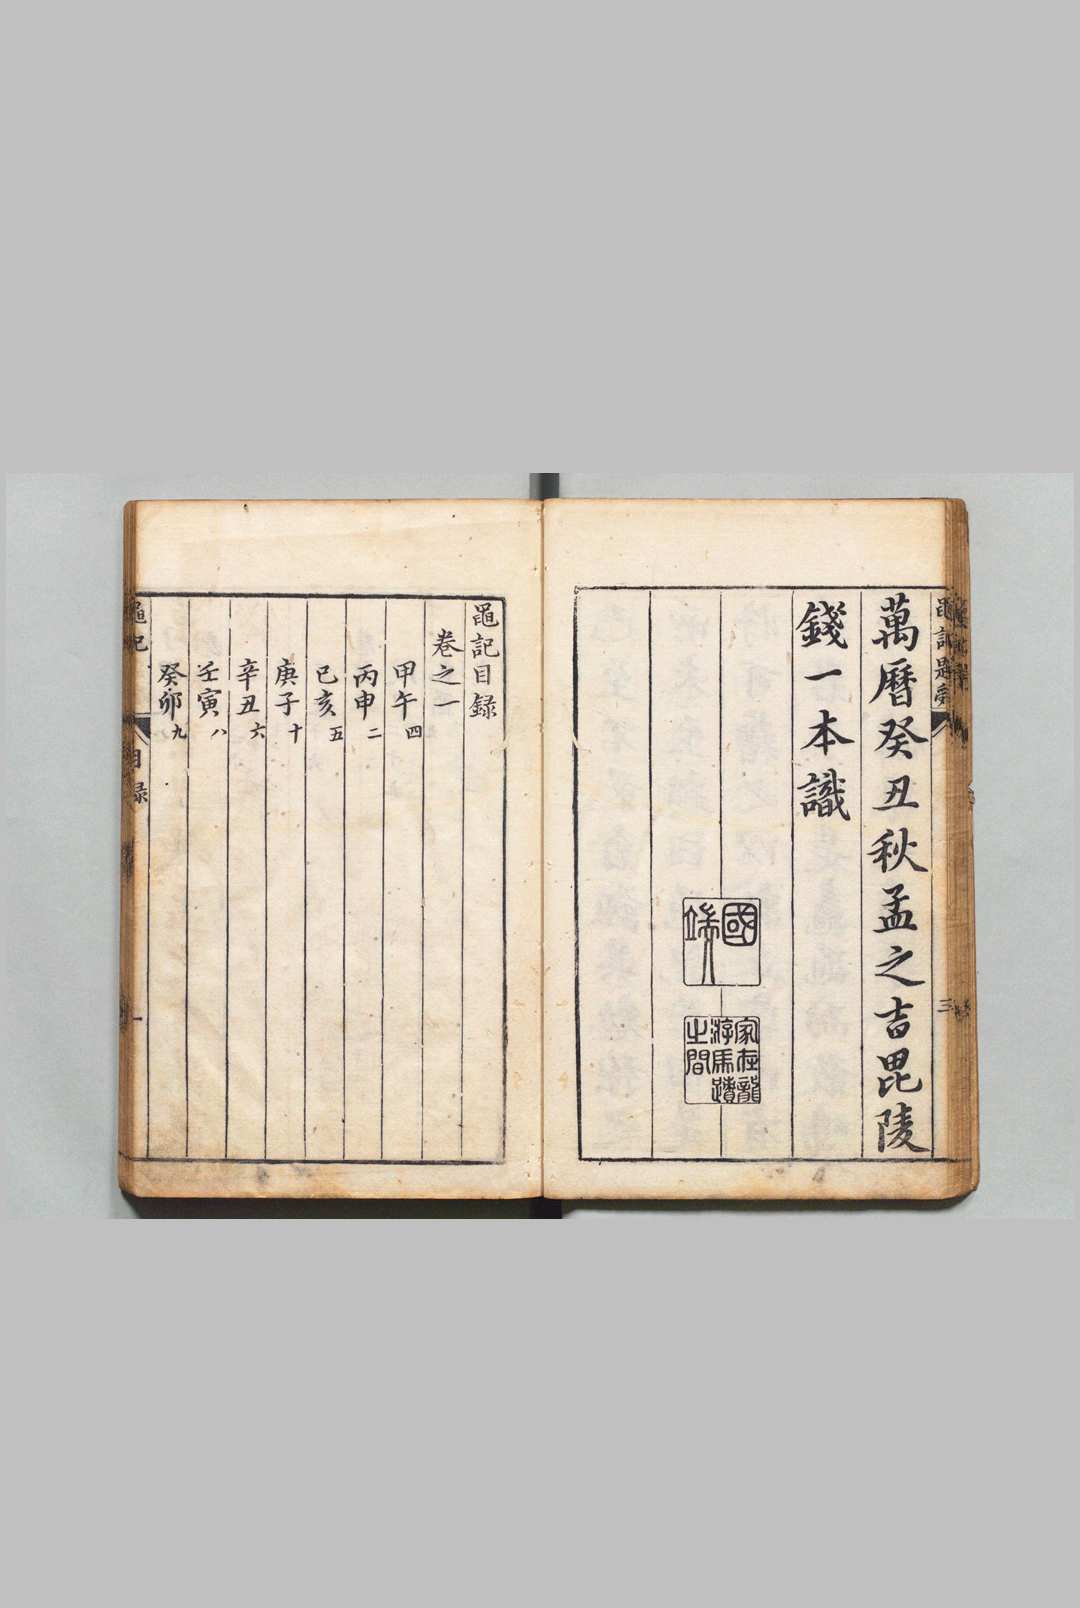 萬曆癸丑秋孟之吉毘陵
錢一本識
國端
家在龍
游馬蹟
之間
三
黽記目録
卷之一
甲午四
丙申二
己亥五
庚子十
辛丑六
壬寅八
癸卯九
黽記
目録
一